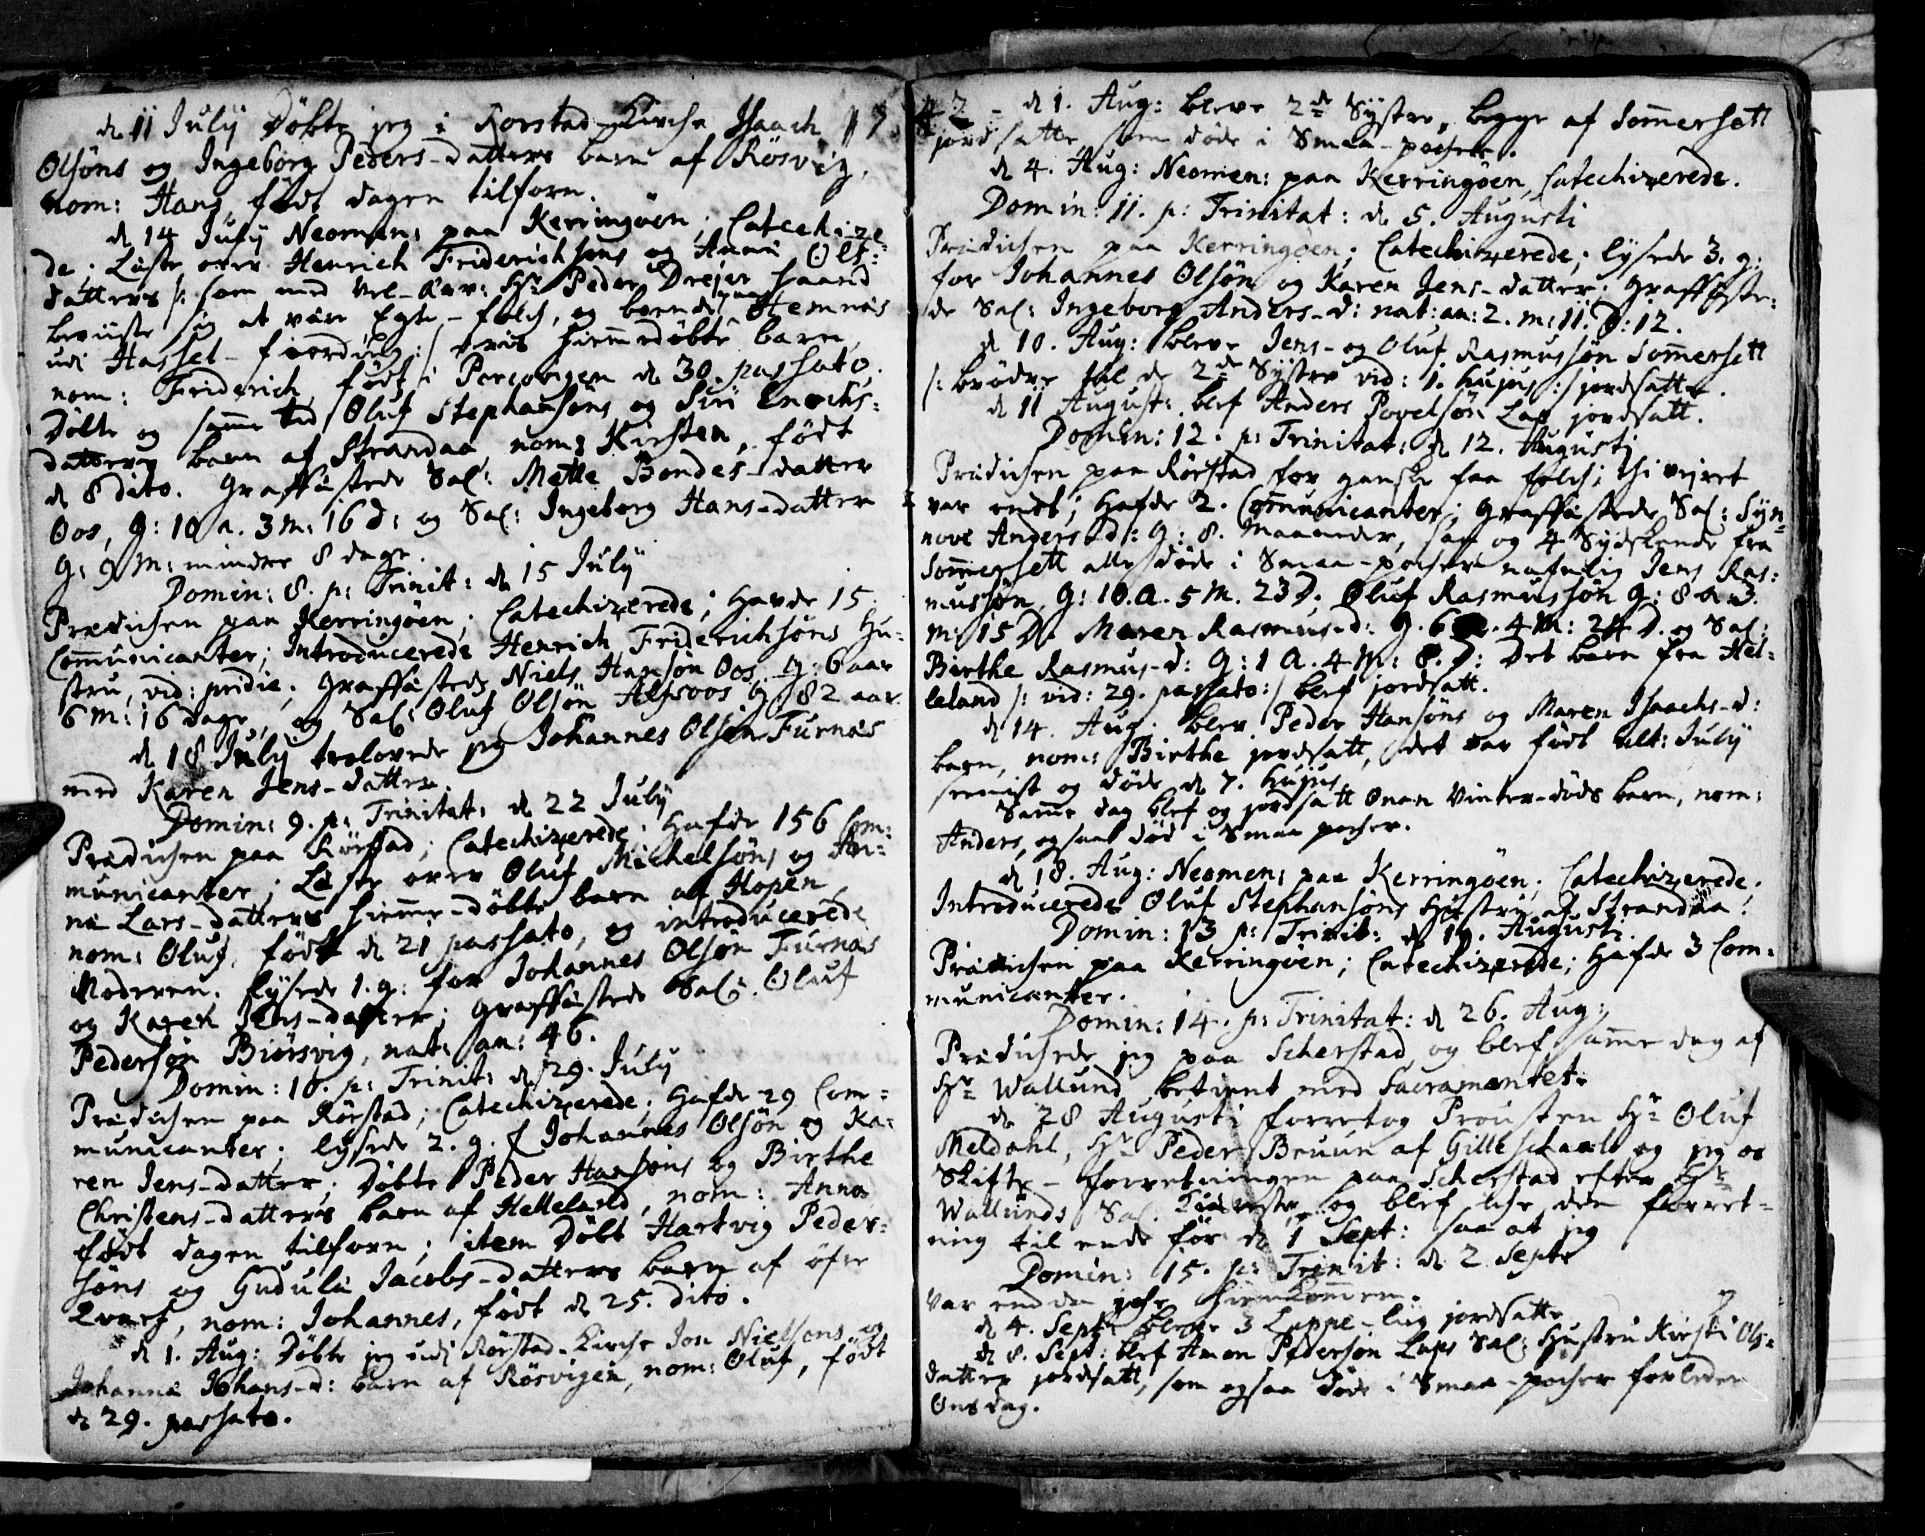 d 11 July Döbte jeg i Rorstad Kirche Isaach
Olsöns og Ingeborg Peders-datters barn af Rösvig,
nom: Hans, födt dagen tilforn.
d 14 July Neomen: paa Kerringöen; Catechize-
de; Læste over Henrich Friderichsöns og Anna Ols-
datters /: som med Vel-Ærv: Hr Peder Drejer haand
beviiste sig at være Egte-folch, og boende paa Hemnæs
udi Hassel-fierding :/ deris hiemmedöbte barn,
nom: Friderich, födt i Percovigen d 30. passato.
Döbte og samme tid Oluf Stephansöns og Siri Enochs-
datters barn af Strandaa, nom: Kirsten, födt
d 8 dito. Graffæstede Sal: Mette Bondes-datter
Oos, G: 10 A. 3 M: 16 D: og Sal: Ingeborg Hans-datter
G: 9 M: mindre 8 dage.
Domin: 8. p: Trinit: d 15 July
Prædichen paa Kerringöen; Catechizerede; Havde 15
Communicanter; Introducerede Henrich Friderichsöns Hu-
stru, vid: pridie; Graffæstede Niels Hansön Oos, G: 6 aar
6 M: 16 dage, og Sal: Oluf Olsön Alsvoos G 82 aar.
d 18 July trolovede jeg Johannes Olsön Furnæs
med Karen Jens-datter.
Domin: 9. p: Trinitat: d 22 July
Prædichen paa Rörstad; Catechizerede; Hafde 156 Com-
municanter; Læste over Oluf Michelsöns og An-
na Lars-datters hiemme-döbte barn af Hopen,
nom: Oluf, födt d 21 passato, og introducerede
Moderen. lysede 1. g: for Johannes Olsön Furnæs
og Karen Jens-datter; Graffæstede Sal: Oluf
Pedersön Biörsvig, nat: an: 46.
Domin: 10. p: Trinit: d 29. July
Prædichen paa Rörstad; Catechizerede; Hafde 29 Com-
municanter; lysede 2. g. f Johannes Olsön og Ka-
ren Jens-datter; Döbte Peder Hansöns og Birthe
Christens-datters barn af Helleland, nom: Anna
födt dagen tilforn; item Döbt Hartvig Peder-
söns og Gudula Jacobs-datters barn af öfre
Qvarf, nom: Johannes, födt d 25. dito.
d 1. Aug: Döbte jeg udi Rörstad-Kirche Jon Nielsöns og
Johanna Johans-d: barn af Rösvigen, nom: Oluf, födt
d 29. passato.
d 1. Aug: bleve 2de Systre, begge af Sommersett
jordsatte som döde i Smaa-pocher.
d 4. Aug: Neomen: paa Kerringöen, Catechizerede.
Domin: 11. p: Trinitat: d 5. Augusti
Prædichen paa Kerringöen; Catechizerede; lysede 3. g:
for Johannes Olsön og Karen Jens-datter. Graffæste-
de Sal: Ingeborg Anders-d: nat: an: 2. m: 11. D: 12.
d 10. Aug: bleve Jens- og Oluf Rasmussön Sommersett
/: brödre til de 2de Systre vid: 1. hujus :/ jordsatte.
d 11 August: blef Anders Povelsön Lap jordsatt.
Domin: 12. p: Trinitat: d 12. Augusti
Prædichen paa Rörstad for ganske faa folch; thi vejret
var ondt; Hafde 2. Communicanter; Graffæstede Sal: Syn-
nove Anders-d: G: 8. Maaneder, saa og 4 Sydskende fra
Sommersett alle döde i Smaa-pocher nafnlig Jens Ras-
mussön, G: 10. A. 5 M. 23 D; Oluf Rasmussön G: 8 A 3.
M: 15 D. Maren Rasmus-d: G. 6 A. 4 M: 24 D. og Sal:
Birthe Rasmus-d: G: 1 A. 4 M: 8. D: Det barn fra Hel-
leland /: vid: 29. passato :/ blef jordsatt.
d 14. Aug: blev Peder Hansöns og Maren Isaachs-d:
barn, nom: Birthe jordsatt, det var födt ult: July
seenist og döde d 7. hujus.
Samme dag blef og jordsatt Onan Vinter-döds barn, nom:
Anders, ogsaa död i Smaa pocher.
d 18. Aug: Neomen: paa Kerringöen; Catechizerede.
Introducerede Oluf Stephansöns Hustru af Strandaa.
Domin: 13 p: Trinit: d 19. Augusti.
Prædichen paa Kerringöen; Catechizerede; Hafde 3 Com-
municanter.
Domin: 14. p: Trinitat: d 26. Aug:
Prædichede jeg paa Scherstad og blef samme dag af
Hr Wallund betient med Sacramentet.
d 28 Augusti forretog Prousten Hr Oluf
Meldahl, Hr Peder Bruun af Gilleschaal og jeg os
Skifte-forretningen paa Scherstad efter Hr
Wallunds Sal. Kiæreste, og blef iche den forret-
ning til ende för d 1 Sept: saa at jeg
Domin: 15. p: Trinit: d 2 Sept:
var endda iche hiemkommen.
d 4. Sept: bleve 3 Lappe-liig jordsatte
d 8. Sept: blef Amon Pedersön Laps Sal: Hustru Kirsti Ols-
datter jordsatt, som ogsaa döde i Smaa-pocher forleden
Onsdag.